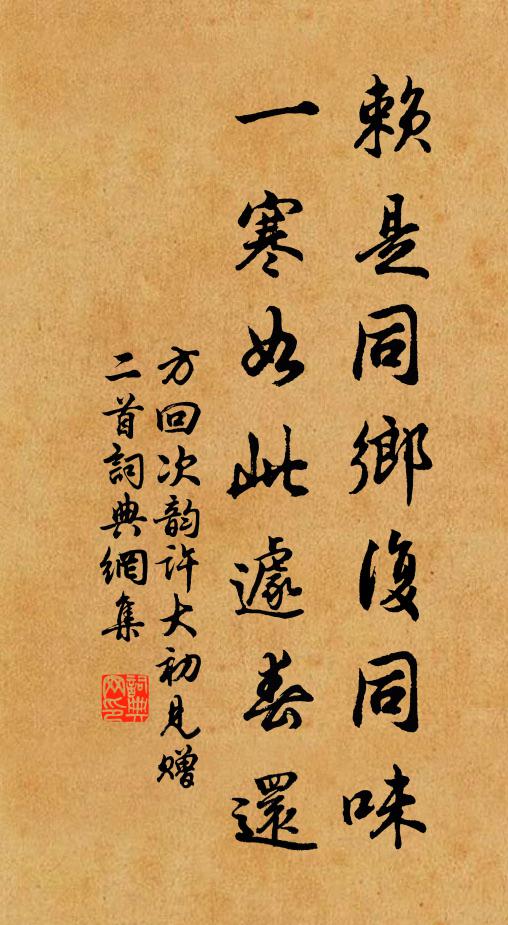 賴是同鄉復同味
一寒如此遽春還
方回次韵許大初見贈
二首詞典網集
詞典網印